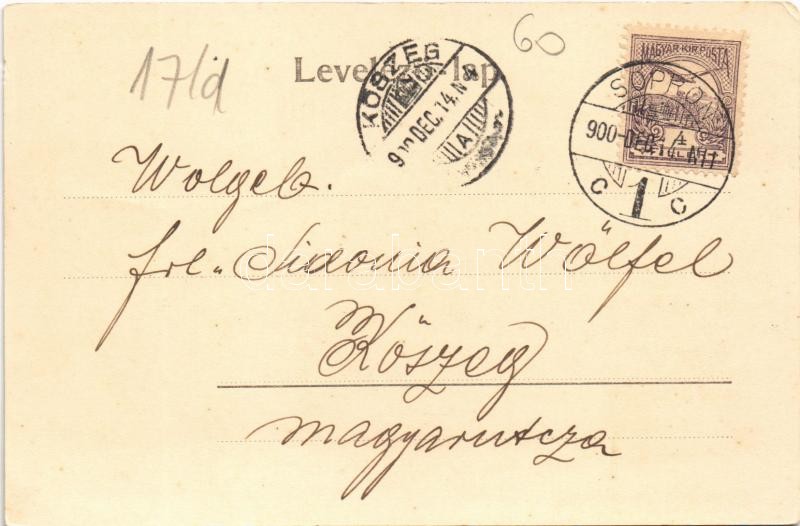 17/d
60
Levelező-lap
KŐSZEG
900 DEC. 14. N
A
MAGYAR KIR. POSTA
SOPRON
900-DEC 14 A11
C 1 C
Wolgeb.
frl. Sidonia Wölfel
darabanth
Kőszeg
magyarutcza